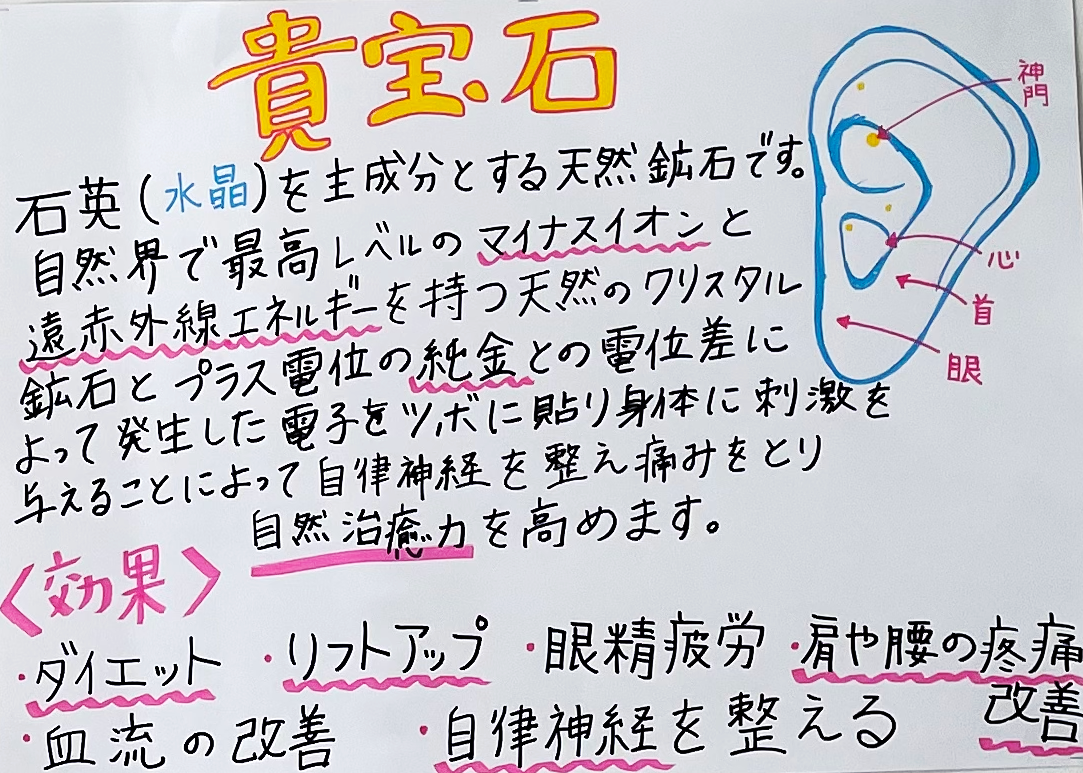 貴宝石
石英(水晶)を主成分とする天然鉱石です。
自然界で最高レベルのマイナスイオンと
遠赤外線エネルギーを持つ天然のクリスタル
鉱石とプラス電位の純金との電位差に
よって発生した電子をツボに貼り身体に刺激を
与えることによって自律神経を整え痛みをとり
自然治癒力を高めます。
神門
心
首
眼
〈効果〉
・ダイエット ・リフトアップ ・眼精疲労 ・肩や腰の疼痛
改善
・血流の改善 ・自律神経を整える